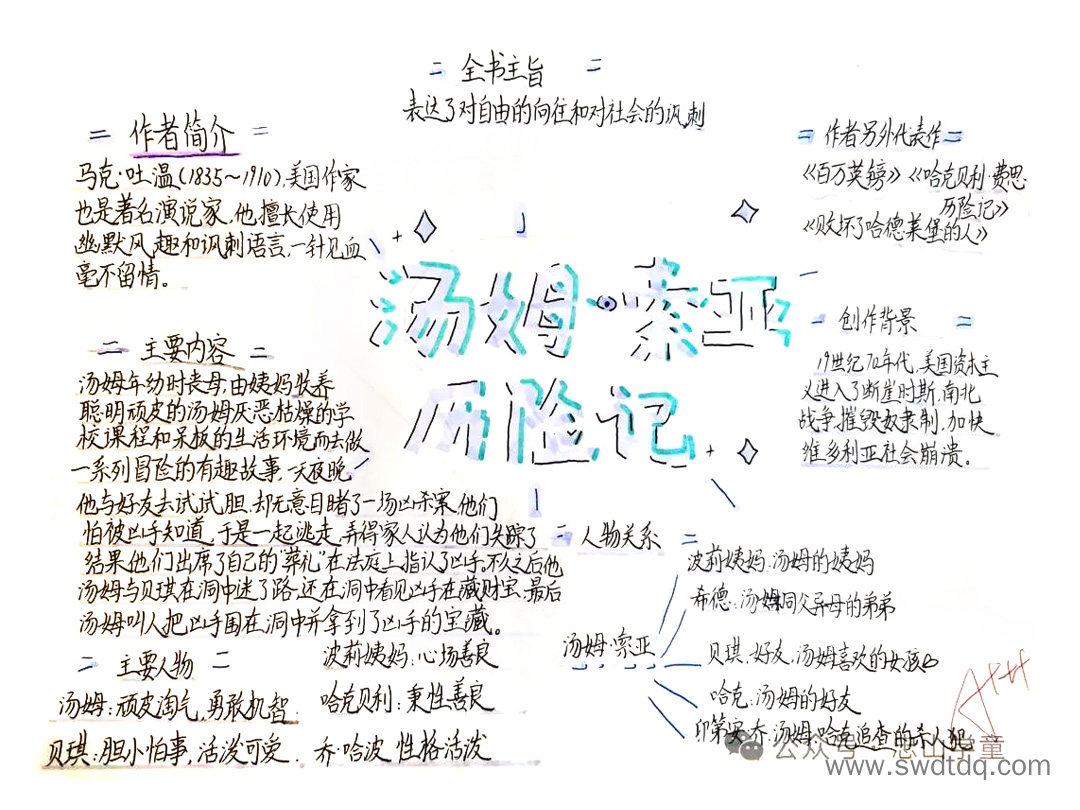 全书主旨
表达了对自由的向往和对社会的讽刺
作者简介
马克·吐温(1835~1910),美国作家
也是著名演说家,他擅长使用
幽默风趣和讽刺语言,一针见血
毫不留情。
作者另外代表作
《百万英镑》《哈克贝利·费恩·
历险记》
《败坏了哈德莱堡的人》
汤姆·索亚
历险记
创作背景
19世纪70年代,美国资本主
义进入了断崖时斯,南北
战争摧毁奴隶制,加快
维多利亚社会崩溃。
主要内容
汤姆年幼时丧母,由姨妈收养
聪明顽皮的汤姆厌恶枯燥的学
校课程和呆板的生活环境而去做
一系列冒险的有趣故事,一天夜晚,
他与好友去试试胆,却无意目睹了一场凶杀案,他们
怕被凶手知道,于是一起逃走,弄得家人认为他们失踪了
结果他们出席了自己的"葬礼"在法庭上指认了凶手,不久之后他
汤姆与贝琪在洞中迷了路,还在洞中看见凶手在藏财宝,最后
汤姆叫人把凶手围在洞中并拿到了凶手的宝藏。
人物关系
汤姆·索亚
波莉姨妈:汤姆的姨妈
希德:汤姆同父异母的弟弟
贝琪,好友,汤姆喜欢的女孩
哈克:汤姆的好友
印第安·乔:汤姆,哈克追查的杀人犯
主要人物
波莉姨妈:心场善良
汤姆:顽皮淘气,勇敢机智.
哈克贝利:秉性善良
贝琪:胆小怕事,活泼可爱.
乔·哈波 性格活泼
A+++
公众号
学童
www.swdtdq.com